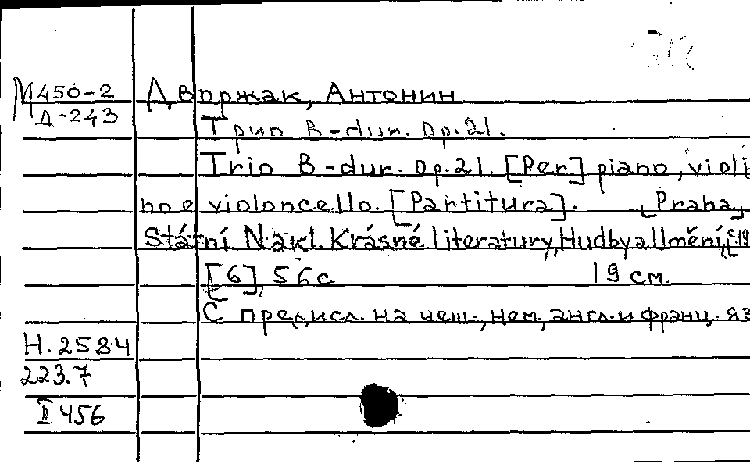 М450-2 Дворжак, Антонин
Д-243
Трио B-dur. Op.21.
Trio B-dur. Op.21. [Per] piano, violi
no e violoncello. [Partitura]. [Praha,
Státní Nakl. Krásné literatury, Hudby a Umění,
[6], 56с 19 см.
С предисл. на чеш., нем., англ. и франц. яз
Н.2584
223.7
II 456